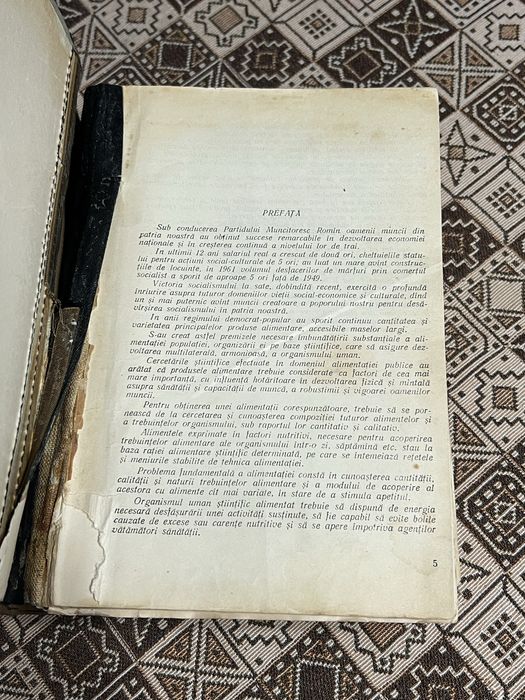 PREFAȚĂ
Sub conducerea Partidului Muncitoresc Romîn oamenii muncii din
patria noastră au obținut succese remarcabile în dezvoltarea economiei
naționale și în creșterea continuă a nivelului lor de trai.
În ultimii 12 ani salariul real a crescut de două ori, cheltuielile statu-
lui pentru acțiuni social-culturale de 5 ori; au luat un mare avînt construc-
țiile de locuințe, în 1961 volumul desfacerilor de mărfuri prin comerțul
socialist a sporit de aproape 5 ori față de 1949.
Victoria socialismului la sate, dobîndită recent, exercită o profundă
înrîurire asupra tuturor domeniilor vieții social-economice și culturale, dînd
un și mai puternic avînt muncii creatoare a poporului nostru pentru desă-
vîrșirea socialismului în patria noastră.
În anii regimului democrat-popular au sporit continuu cantitatea și
varietatea principalelor produse alimentare, accesibile maselor largi.
S-au creat astfel premizele necesare îmbunătățirii substanțiale a ali-
mentației populației, organizării ei pe baze științifice, care să asigure dez-
voltarea multilaterală, armonioasă, a organismului uman.
Cercetările științifice efectuate în domeniul alimentației publice au
arătat că produsele alimentare trebuie considerate ca factori de cea mai
mare importanță, cu influență hotărîtoare în dezvoltarea fizică și mintală
asupra sănătății și capacității de muncă, a robustimii și vigoarei oamenilor
muncii.
Pentru obținerea unei alimentații corespunzătoare, trebuie să se por-
nească de la cercetarea și cunoașterea compoziției tuturor alimentelor și
a trebuințelor organismului, sub raportul lor cantitativ și calitativ.
Alimentele exprimate în factori nutritivi, necesare pentru acoperirea
trebuințelor alimentare ale organismului într-o zi, săptămînă etc. stau la
baza rației alimentare științific determinată, pe care se întemeiază rețetele
și meniurile stabilite de tehnica alimentației.
Problema fundamentală a alimentației constă în cunoașterea cantității,
calității și naturii trebuințelor alimentare și a modului de acoperire al
acestora cu alimente cît mai variate, în stare de a stimula apetitul.
Organismul uman științific alimentat trebuie să dispună de energia
necesară desfășurării unei activități susținute, să fie capabil să evite bolile
cauzate de excese sau carențe nutritive și să se apere împotriva agenților
vătămători sănătății.
5